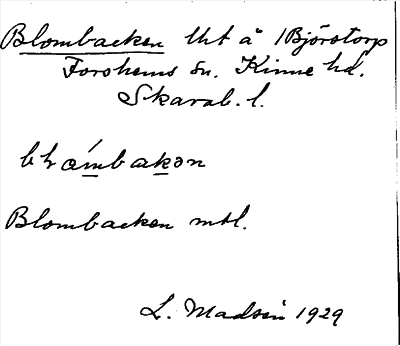 Blombacken lht å 1 Björstorp
Forshems sn. Kinne hd.
Skarab. l.
Blombacken mtl.
L. Madsén 1929